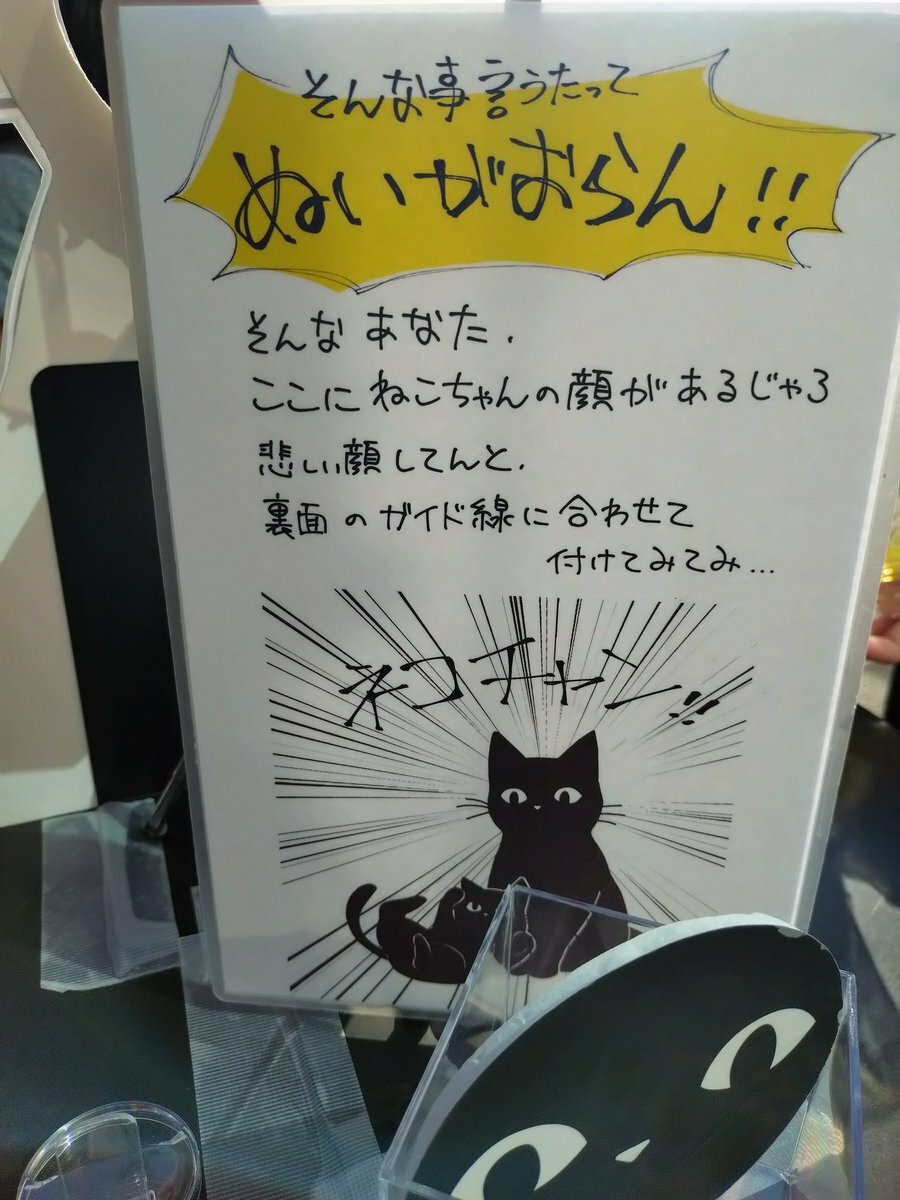 そんな事言うたって
ぬいがおらん!!
そんなあなた.
ここにねこちゃんの顔があるじゃろ
悲しい顔してんと.
裏面のガイド線に合わせて
付けてみてみ...
ネコチャン!!